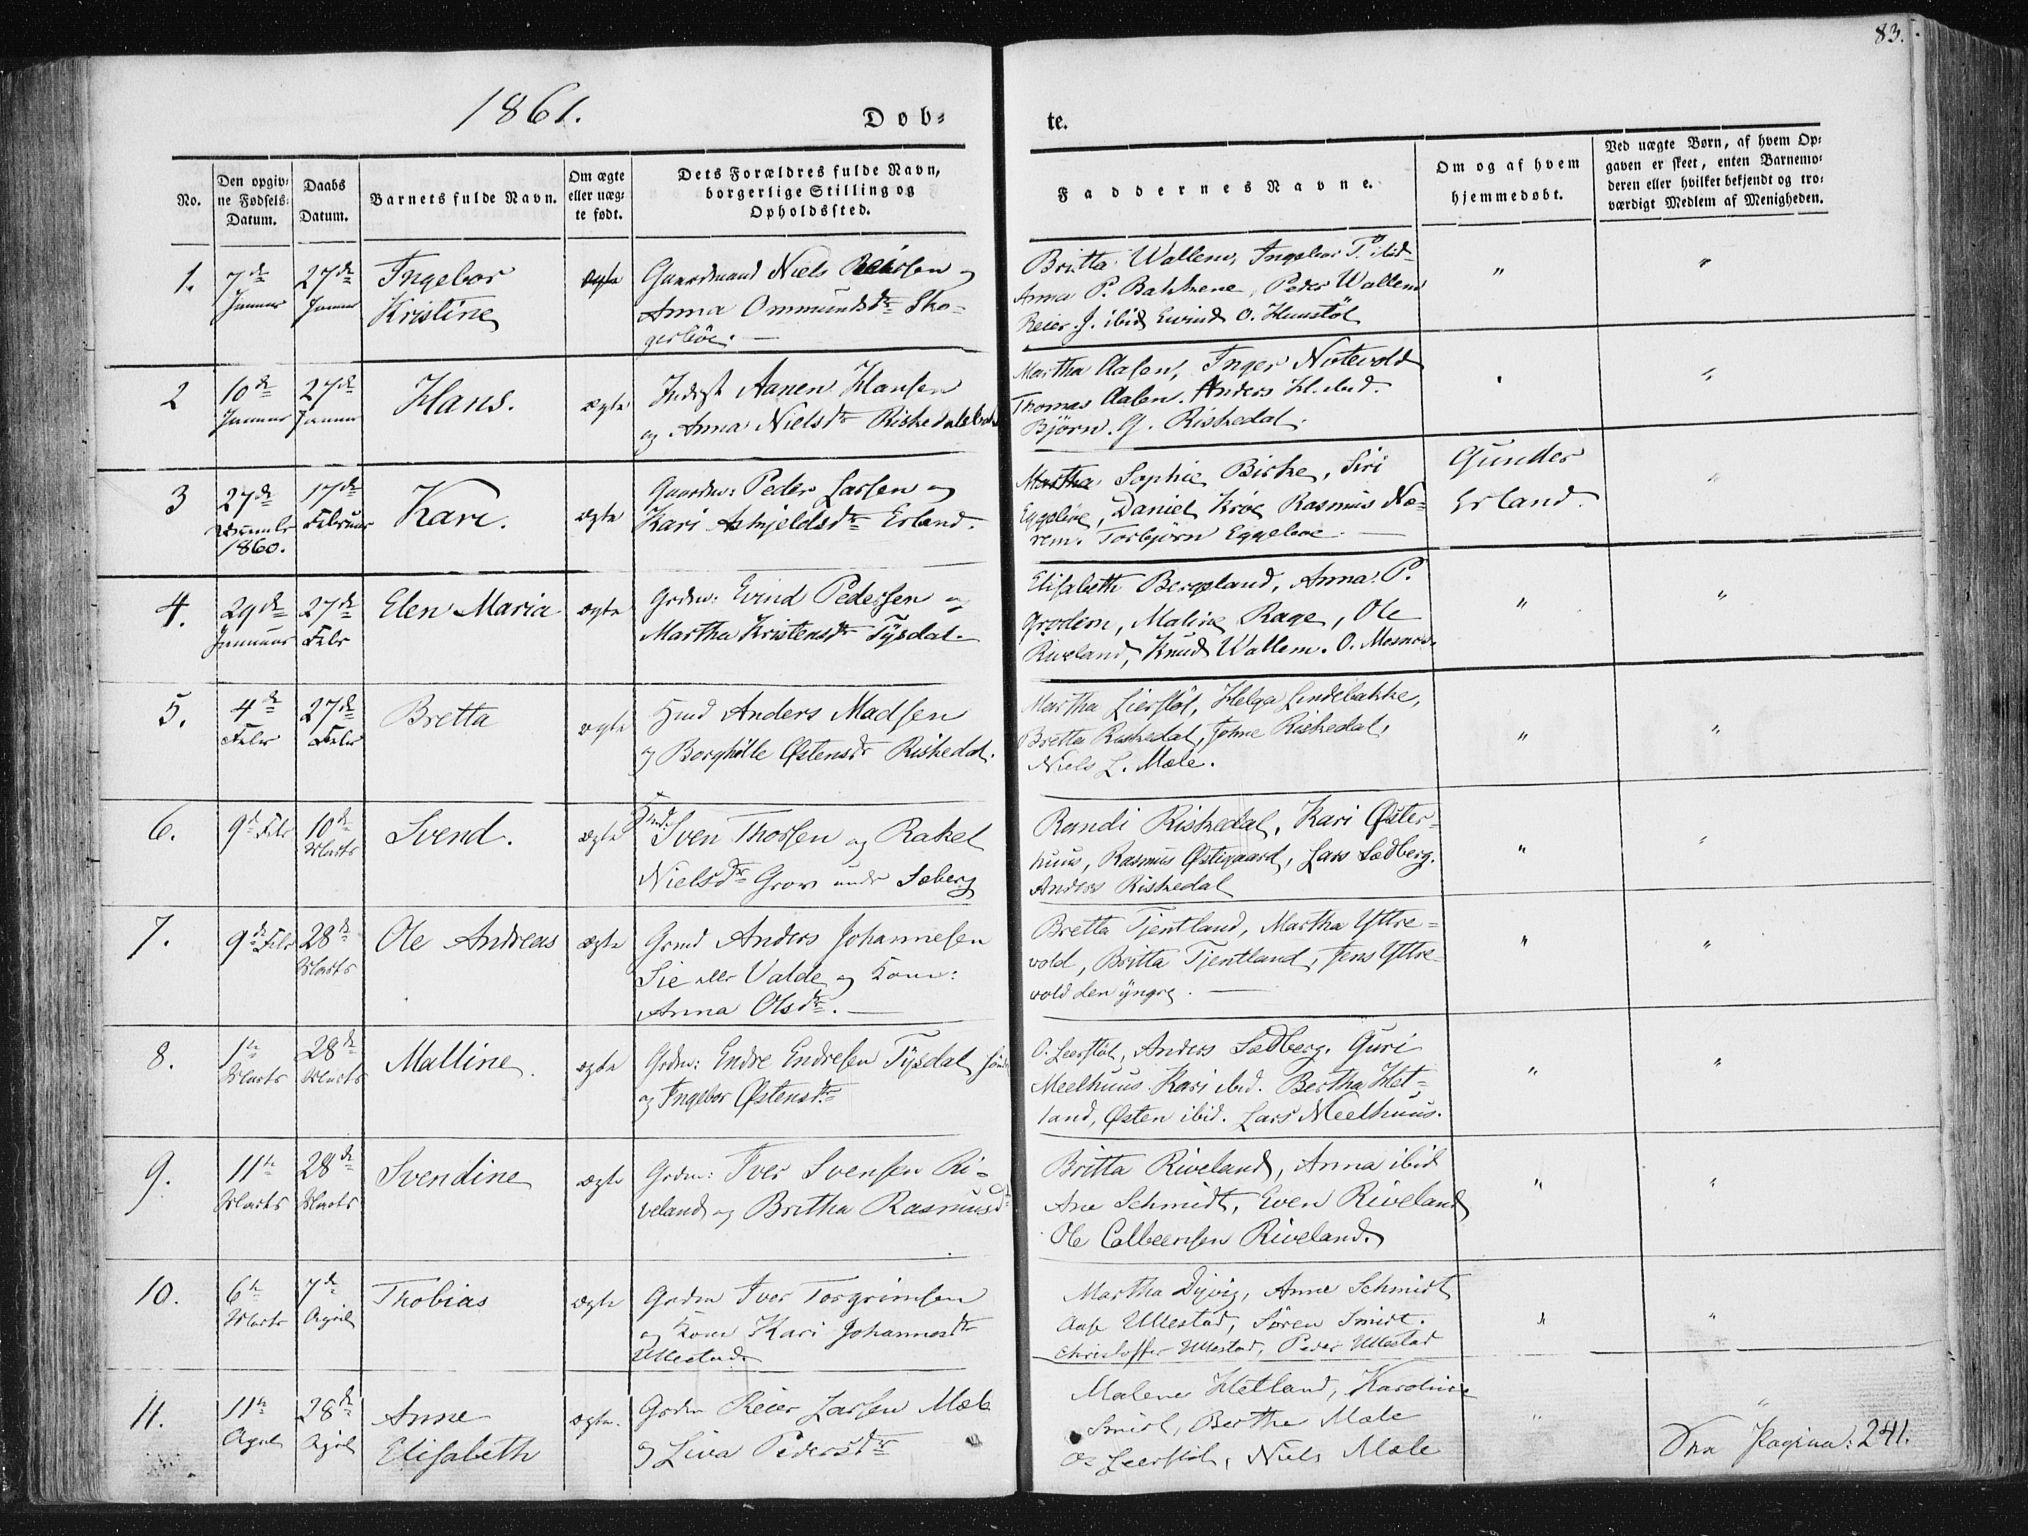 83.
1861.
Døb-
te.
No.
Den opgiv-
ne Fødsels-
Datum.
Daabs
Datum.
Barnets fulde Navn.
Om ægte
eller uæg-
te født.
Dets Forældres fulde Navn,
borgerlige Stilling og
Opholdssted.
Faddernes Navne.
Om og af hvem
hjemmedøbt.
Ved uægte Børn, af hvem Op-
gaven er skeet, enten Barnemo-
deren eller hvilket bekjendt og tro-
værdigt Medlem af Menigheden.
1.
7de
Januar
27de
Januar
Ingebor
Kristine
ægte
Gaardmand Niels Reiersen og
Anna Ommundsdtr Sko-
geböe. —
Britta Wallem, Ingebor T. ibid
Anna P. Bakkene, Peder Wallem
Reier J. ibid Ewind O. Hunstöl
"
"
2
10de
Januar
27de
Januar
Hans.
ægte
Inderst Aanen Hansen
og Anna Nielsdtr Riskedal
Martha Aasen, Inger Nutevold
Thomas Aasen. Anders H. ibid.
Björn. G. Riskedal.
"
3
27de
Decembr
1860.
17de
Februar
Kari.
ægte
Gaardm: Peder Larsen og
Kari Askjeldsdtr Erland.
Martha Sophie Birke, Siri
Eggeböe, Daniel Kröe Rasmus Næ-
rem. Torbjörn Eggeboe. —
Gunder
Erland.
"
4.
29de
Januar
27de
Febr
Elen Maria
ægte
Grdm: Evind Pedersen og
Martha Kristensdtr Tÿsdal.
Elisabeth Bergeland, Anna P.
Grødem, Maline Rage, Ole
Riveland, Knud Wallem. O. Mosnes.
"
"
5.
4de
Febr
27de
Febr
Bretta
ægte
Hmd Anders Madsen
og Borghille Østensdtr Riskedal.
Martha Lierstöl, Helga Lindebakke,
Bretta Riskedal, Johne Riskedal,
Niels L. Mæle.
"
"
6.
9d Febr
10de
Marts
Svend.
ægte
Sven Thorsen og Rakel
Nielsdtr Grov under Sæberg
Randi Riskedal, Kari Øster-
huus, Rasmus Østigaard, Lars Sædberg.
Anders Riskedal
"
"
7.
9de Febr
28de
Marts
Ole Andreas
ægte
Grmd Anders Johannesen
Sie eller Valde og Kone:
Anna Olsdtr. —
Bretta Tjentland, Martha Yttre-
vold, Britta Tjentland, Jens Yttre-
vold den ÿngre. —
"
"
8.
1te
Marts
28de
Marts
Malline.
ægte
Grdm: Endre Endresen Tÿsdal
og Ingebor Østensdtr
O. Leerstöl, Anders Sædberg. Guri
Meelhuus. Kari ibid. Bertha Het-
land, Østen ibid. Lars Meelhuus.
"
"
9.
11te
Marts
28de
Marts
Svendine
ægte
Grdm: Iver Svensen Ri-
veland og Britha Rasmusdtr
Britta Riveland, Anna ibid
Ane Schmidt, Even Riveland
Ole Colbeensen Riveland.
"
"
10.
6te
Marts
7de
April
Thobias
ægte
Grdm Iver Torgrimsen
og Kone Kari Johannesdtr
Ullestad
Martha Dÿvig, Anne Schmidt
Aase Ullestad, Søren Smidt.
Christoffer Ullestad, Peder Ullestad
"
"
11.
11te
April
28de
April
Anne
Elisabeth
ægte.
Grdm Reier Larsen Mæle
og Liva Pedersdtr
Malene Hetland, Karoline
Smidt, Berthe Mæle
O. Leerstöl, Niels Mæle
"
"
Fra Pagina: 241.